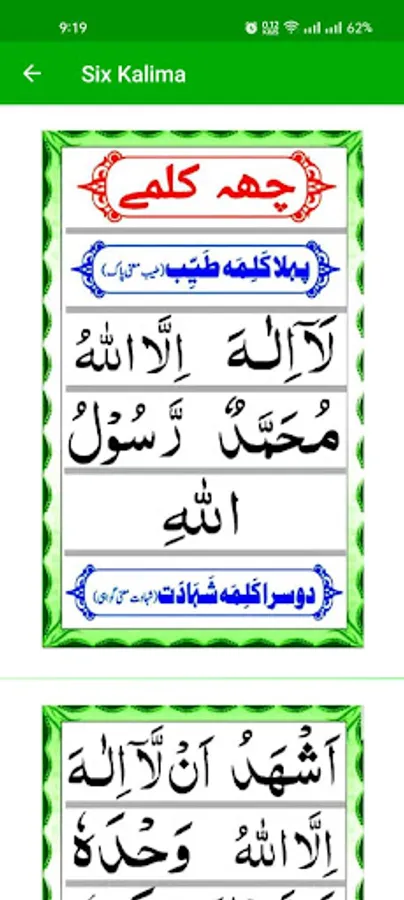 9:19 0.12 KB/S 62%
Six Kalima
چھہ کلمے
پہلا کَلِمَہ طَیِّب (طیب معنی پاک)
لَآ اِلٰهَ اِلَّا اللّٰهُ
مُحَمَّدٌ رَّسُوْلُ
اللّٰهِ
دوسرا کَلِمَہ شَہَادَت (شہادت معنی گواہی)
اَشْهَدُ اَنْ لَّآ اِلٰهَ
اِلَّا اللّٰهُ وَحْدَهٗ